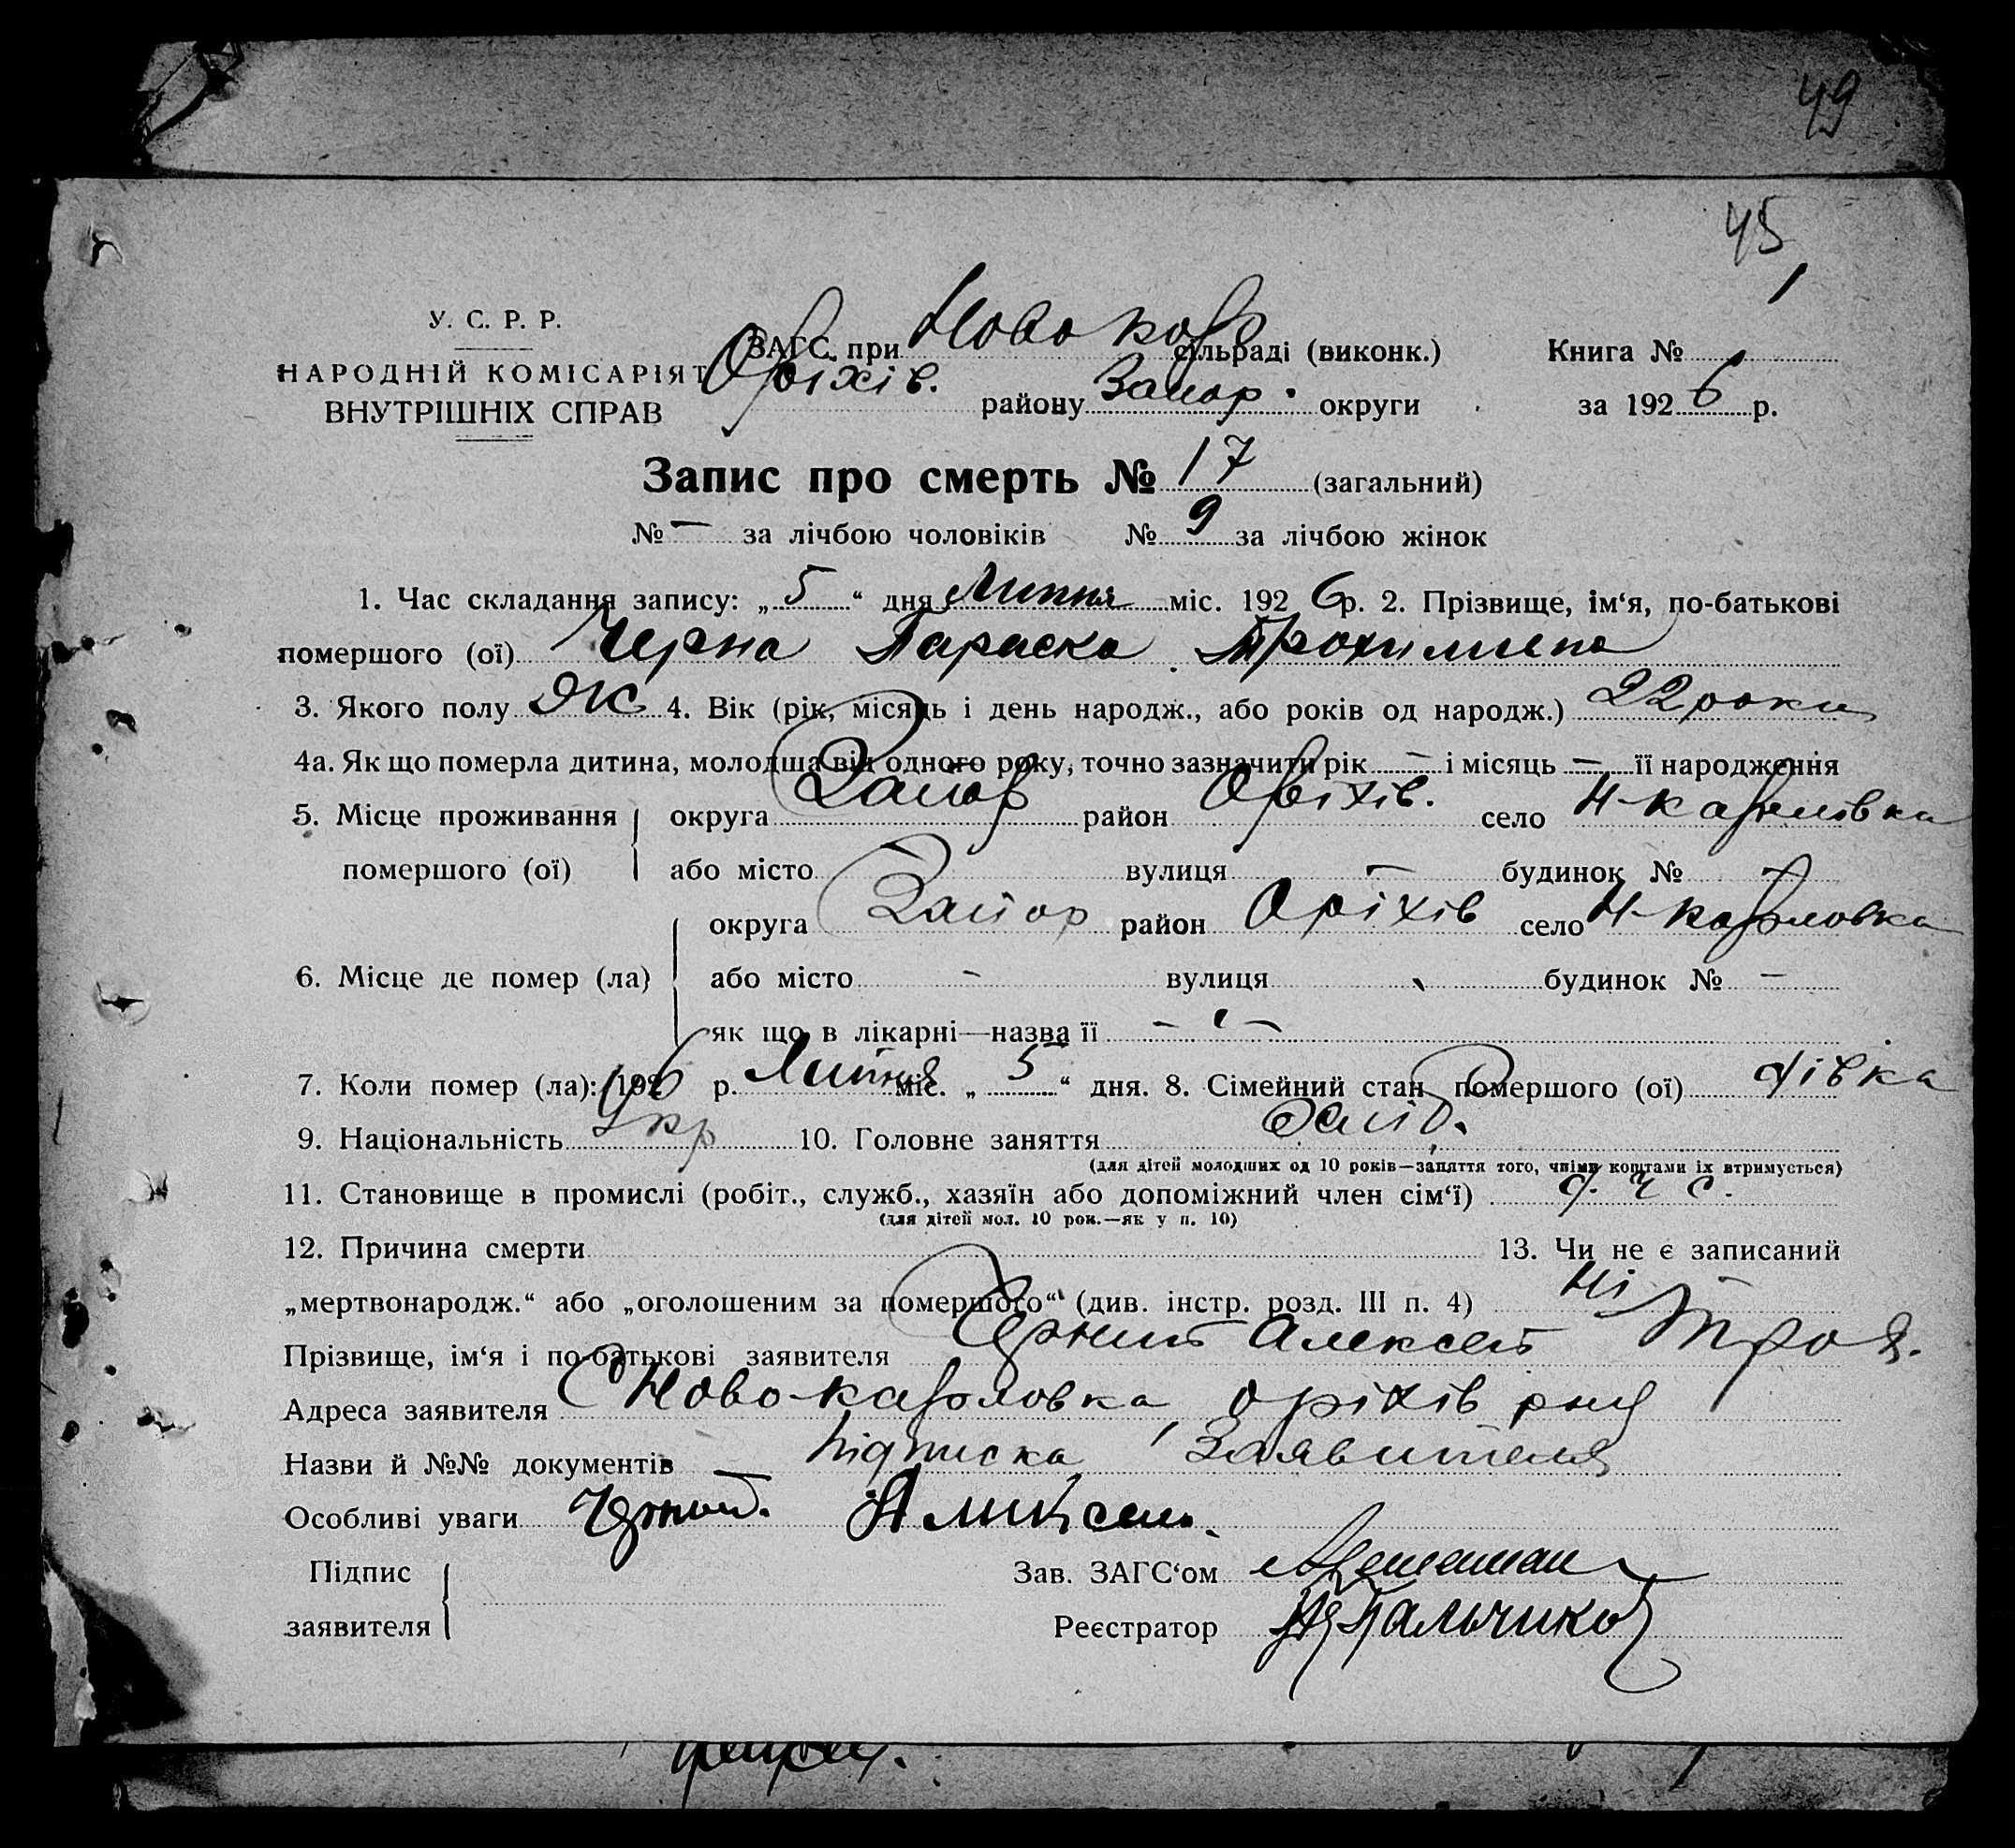 49
45
У. С. Р. Р.
НАРОДНІЙ КОМІСАРІЯТ
ВНУТРІШНІХ СПРАВ
ЗАГС при Новокар сільраді (виконк.) Книга № 1
Оріхів. району Запор. округи за 1926 р.
Запис про смерть № 17 (загальний)
№ — за лічбою чоловіків № 9 за лічбою жінок
1. Час складання запису: „5“ дня Липня міс. 1926 р. 2. Прізвище, ім‘я, по-батькові
помершого (ої) Черна Параска Трохимивна
3. Якого полу Ж 4. Вік (рік, місяць і день народж., або років од народж.) 22 роки
4а. Як що померла дитина, молодша від одного року, точно зазначити рік — і місяць — її народження
5. Місце проживання округа Запор район Оріхів. село Н-карлівка
помершого (ої) або місто вулиця — будинок № —
округа Запор район Оріхів село Н-карловка
6. Місце де помер (ла) або місто - вулиця будинок № —
як що в лікарні—назва її — „ —
7. Коли помер (ла): 1926 р. Липня міс. „5“ дня. 8. Сімейний стан помершого (ої) дівка
9. Національність Укр 10. Головне заняття
(для дітей молодших од 10 років—заняття того, чиїми коштами їх втримується)
11. Становище в промислі (робіт., служб., хазяїн або допоміжний член сім‘ї) д. ч. с.
(для дітей мол. 10 рок.—як у п. 10)
12. Причина смерти 13. Чи не є записаний
„мертвонародж.“ або „оголошеним за помершого“ (див. інстр. розд. III п. 4) Ні
Прізвище, ім‘я і по-батькові заявителя Черний Алексей Троф.
Адреса заявителя Ново-карловка, оріхів рну
Назви й №№ документів — підписка Заявителя
Особливі уваги Черной.
Підпис Зав. ЗАГС‘ом
заявителя Реєстратор Пальчиков